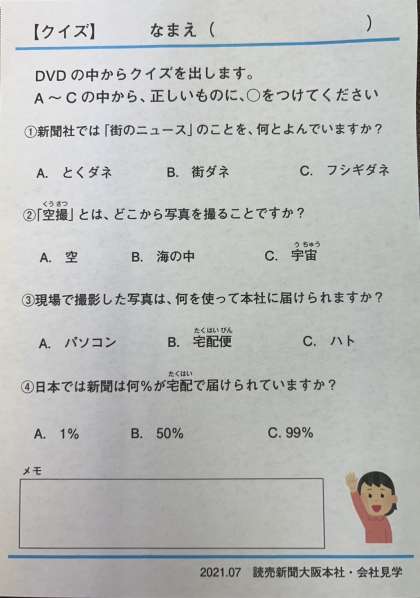 【クイズ】 なまえ ( )
DVD の中からクイズを出します。
A ～ C の中から、正しいものに、○をつけてください
①新聞社では「街のニュース」のことを、何とよんでいますか？
A. とくダネ B. 街ダネ C. フシギダネ
くうさつ
②「空撮」とは、どこから写真を撮ることですか？
うちゅう
A. 空 B. 海の中 C. 宇宙
③現場で撮影した写真は、何を使って本社に届けられますか？
たくはいびん
A. パソコン B. 宅配便 C. ハト
たくはい
④日本では新聞は何％が宅配で届けられていますか？
A. 1% B. 50% C. 99%
メモ
2021.07 読売新聞大阪本社・会社見学